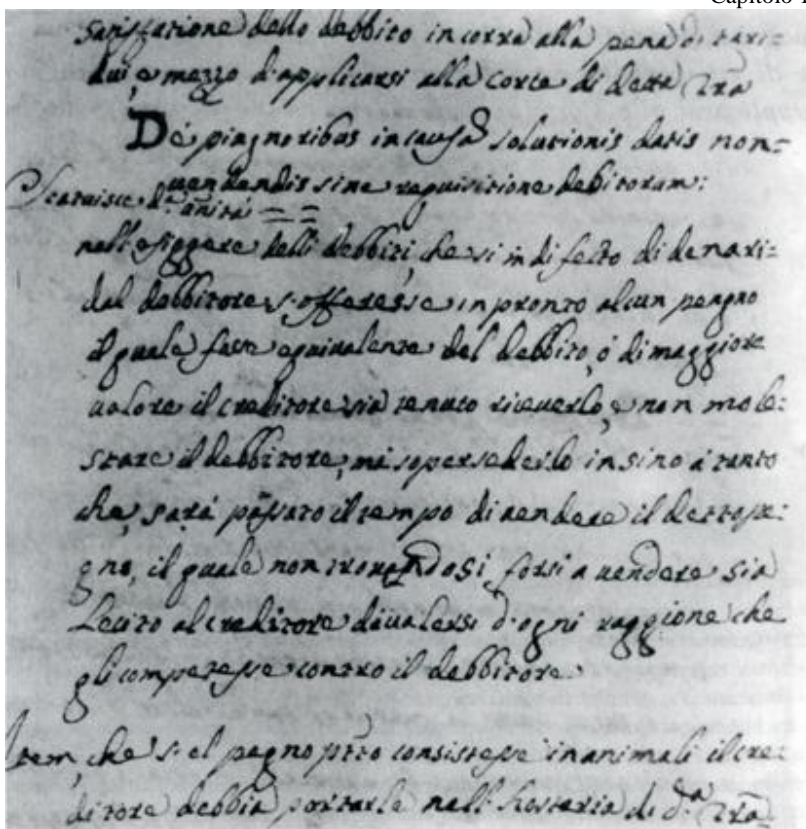 Capitolo 1
satisfatione dello debbito incorra alla pena di tari=
dui, e mezzo d'applicarsi alla corte di detta Trã
De piagnoribus in causa solutionis datis non=
uendendis sine requisitione debitorum:
Statuisce d.ª uñitá = =
nell'esiggere delli debbiti, che si in difetto di denari=
dal debbitore s'offeresse in pronto alcun pengno
il quale fosse equiualente del debbito, ó di maggiore
ualore il creditore sia tenuto riceuerlo, e non mole:
stare il debbitore, má soperséderlo in sino á tanto
che, sará passato il tempo di uendere il detto pe:
gno, il quale non trouandosi forsi a uendere sia
Lecito al creditore di ualersi d'ogni raggione che
gli competesse contro il debbitore
Item, che s'el pegno ptto consistesse in animali il cre:
ditore debbia portarle nell'hostaria di d.ª Trã